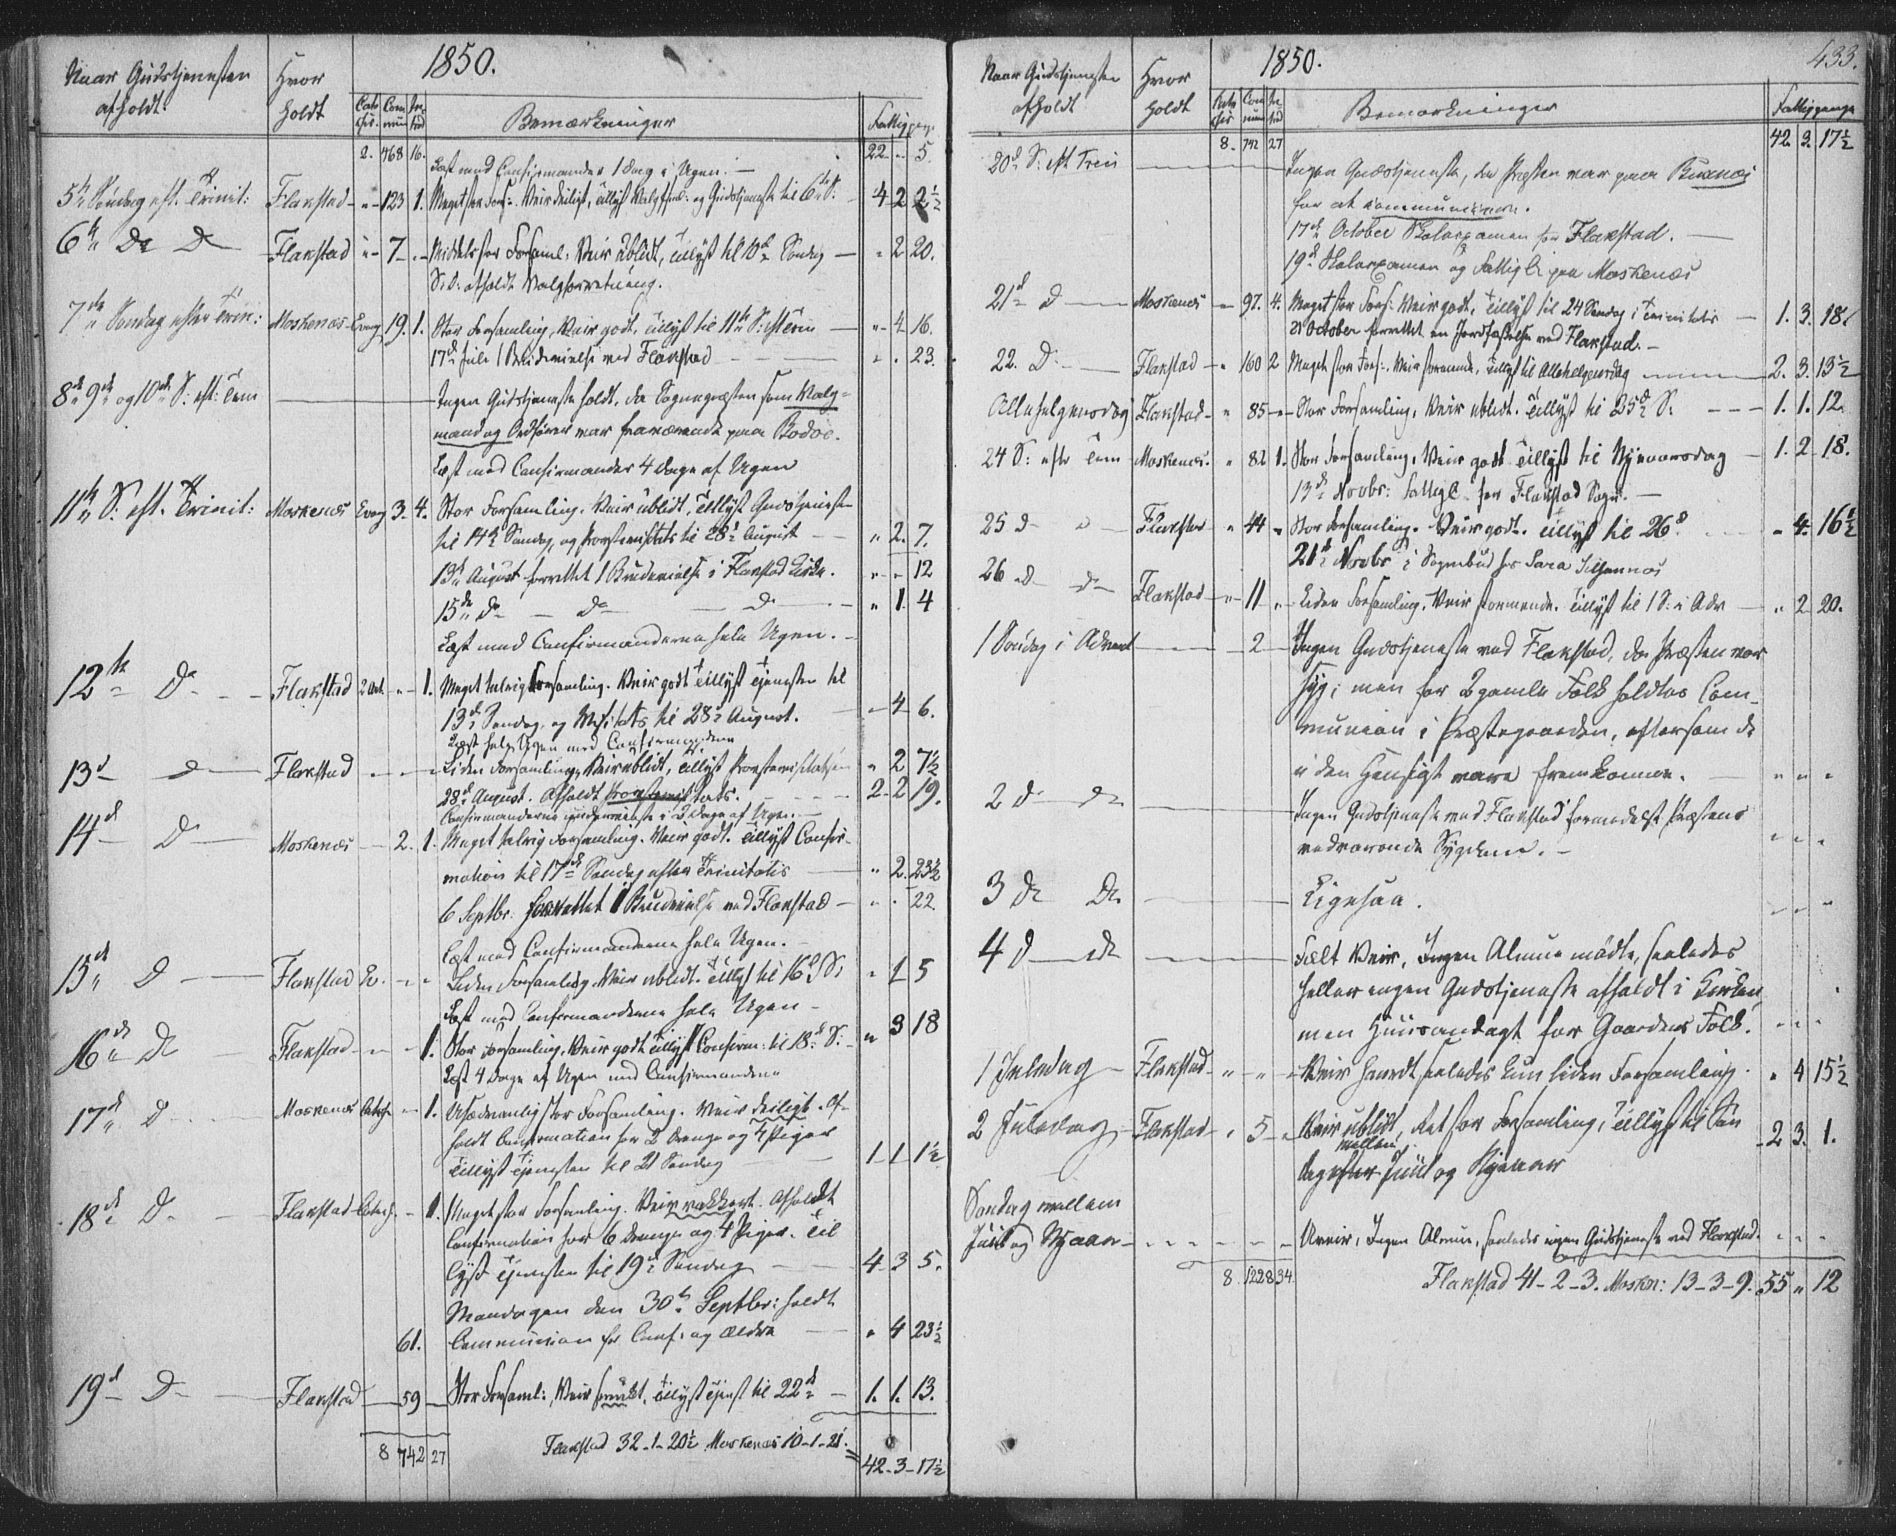 1850.
Naar Gudstjenesten
afholdt.
Hvor
holdt
Cate
chis.
Com
mun
Fattigpeng
Bemærkninger
2. 468 16. 22 - " 5.
Læst med Confirmander 1 Dag i Ugen. -
5te Søndag eft. Trinit: Flakstad - " - 123 1. Meget stor Fors: Veir deiligt, tillyst Valgforr: og Gudstjeneste til 6te S: 4 2 2½
6te Do Do Flakstad " - 7 - " - Middelstor Forsaml: Veir ublidt, tillyst til 10de Søndag - " 2 20.
S. D. afholdt Valgforretning.
7de Søndag efter Trin: Moskenæs - Evang 19. 1. Stor Forsamling, Veir godt, tillyst til 11te S: eft Trin - " - 4 16.
17de Juli 1 Brudevielse ved Flakstad - - - " . 23.
8de 9de og 10de S: eft: Trin Ingen Gudstjeneste holdt, da Sognepræsten som Valg-
mand og Ordfører var fraværende paa Bodøe.
Læst med Confirmander 4 Dage af Ugen
11te S: eft. Trinit: Moskenæs Evang 3. 4. Stor Forsamling. Veir ublidt, tillyst Gudstjeneste
til 14de Søndag, og Provstevisitats til 28de August - " 2. 7.
13de August forrettet 1 Brudevielse i Flakstad Kirke. " - " 12
15de Do - Do - Do - " 1. 4
Læst med Confirmanderne hele Ugen. -
12te Do - - Flakstad " - 1. Meget talrig Forsamling. Veir godt tillyst Tjenesten til
13de Søndag og Visitats til 28de August. - " 4 - 6.
Læst hele Ugen med Confirmanderne
13de Do Flakstad - - - Liden Forsamling, Veir ublidt, tillyst Provstevisitatsen " 2 7½
28de August. Afholdt Provstevisitats. - - - 2 - 2 19.
14de Do - Moskenæs - 2. 1. Meget talrig Forsamling. Veir godt. tillyst Confir-
mation til 17de Søndag efter Trinitatis - " 2. 23½
6 Septbr: forrettet 1 Brudevielse ved Flakstad - " . 22.
Læst med Confirmanderne hele Ugen. -
15de Do - Flakstad " - " Liden Forsamling. Veir ublidt. tillyst til 16de S: " 1 5
Læst med Confirmanderne hele Ugen -
16de Do Flakstad - " - 1. Stor Forsamling, Veir godt tillyst Confirm: til 18de S: - " 3 18
Læst 4 Dage af Ugen med Confirmanderne
17de Do Moskenæs " - 1. Usædvanlig stor Forsamling. Veir deiligt. Af-
holdt Confirmation for 2 Drenge og 4 Piger
tillyst Tjenesten til 21 Søndag 1 - 1 1½
18de Do - Flakstad - 1. Meget stor Forsamling. Veir vakkert. Afholdt
Confirmation for 6 Drenge og 4 Piger. Til
lyst Tjenesten til 19de Søndag - 4 - 3 5.
Mandagen den 30te Septbr: holdt
61. Communion for Conf: og Ældre - " 4 23½
19de Do - Flakstad - 59 - Stor Forsaml:, Veir smukt, tillyst Tjenest til 22de - 1. 1. 13.
8 742 27 Flakstad 32 - 1 - 20½ Moskenæs 10 - 1 - 21. 42 - 3 - 17½
1850.
433.
Naar Gudstjenesten
afholdt
Hvor
holdt
Cate
chis
Com
mun
Bemærkninger
Fattigpenge
8. 742 27 42. 3. 17½
20de S: eft Trin Ingen Gudstjeneste, da Præsten var paa Buxnæs
for at communicere.
17de October Skoleexamen for Flakstad. -
19de Skoleexamen og Fattigk: paa Moskenæs
21de Do - Moskenæs - 97. 4. Meget stor Fors: Veir godt, tillyst til 24 Søndag i Trinitatis - 1. 3. 18.
21 October forrettet en Jordfæstelse ved Flakstad. -
22. Do - Flakstad - " 100 2 Meget stor Fors:. Veir stormende, tillyst til Allehelgensdag 2. 3. 13½
Allehelgensdag Flakstad - " 85 - Stor Forsamling, Veir ublidt. tillyst til 25de S: - - - 1. 1. 12.
24 S: eftr Trin Moskenæs. " 82 1. Stor Forsamling, Veir godt tillyst til Nyeaarsdag 1. 2 - 18.
13de Novbr: Fattigk. for Flakstad Sogn. -
25 Do Flakstad " 44 " Stor Forsamling. Veir godt. tillyst til 26de " 4. 16½
21de Novbr i Sognebud hos
26 Do Do Flakstad - " 11 " Liden Forsamling. Veir stormende. tillyst til 1 S: i Adv - " 2 20.
1 Søndag i Advent - 2 - Ingen Gudstjeneste ved Flakstad, da Præsten var
syg; men for 2 gamle Folk holdtes Com-
munion i Præstegaarden, eftersom de
i den Hensigt vare fremkomne. - " " "
2 Do Do Ingen Gudstjeneste ved Flakstad formedelst Præstens
vedvarende Sygdom. - " " "
3 Do Do Ligesaa. " " "
4 Do Do Fælt Veir, Ingen Almue mødte, saaledes
heller ingen Gudstjeneste afholdt i Kirken
men Huusandagt for Gaardens Folk. " " "
1 Juledag - Flakstad - " - " - Veir haardt saaledes kun liden Forsamling. " 4 15½
2 Juledag - Flakstad - " 5 - " Veir ublidt, Ret stor Forsamling, tillyst til Søn
dag efter mellem Juul og Nyeaar 2 3. 1.
Søndag mellem
Juul og Nyaar - Uveir, Ingen Almue, saaledes ingen Gudstjeneste ved Flakstad. " " "
8. 1228 34 Flakstad 41 - 2 - 3. Mosken: 13 - 3 - 9. 55 " 12